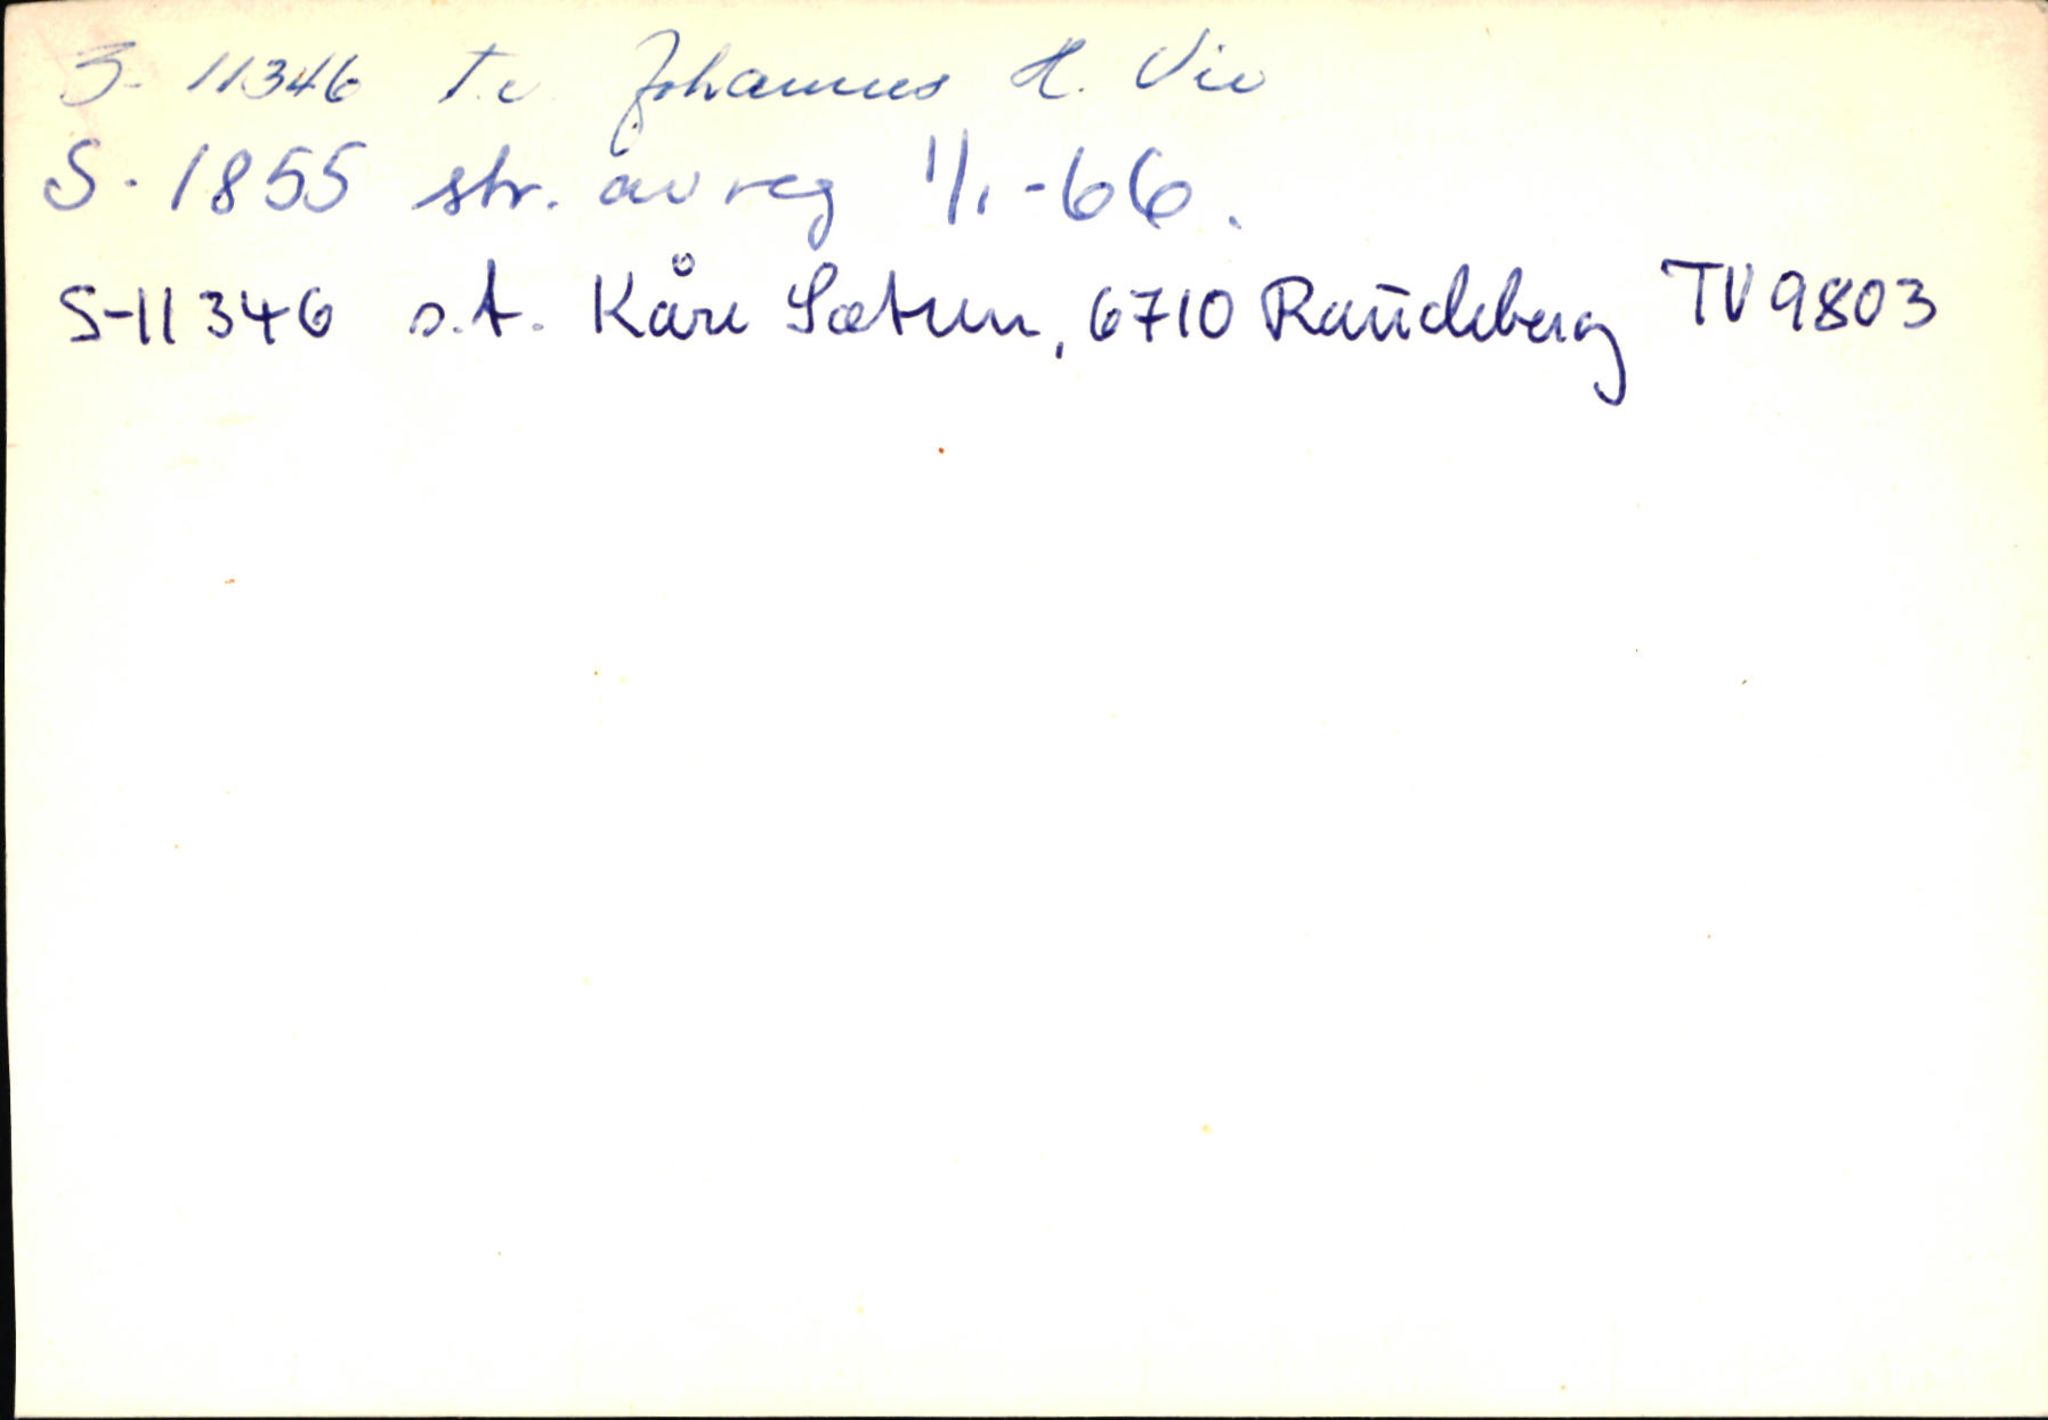 S- 11346 t.e. Johannes H. Vie
S- 1855 str. av reg 1/1-66.
S-11346 o.t. Kåre Sætren, 6710 Raudeberg TV 9803